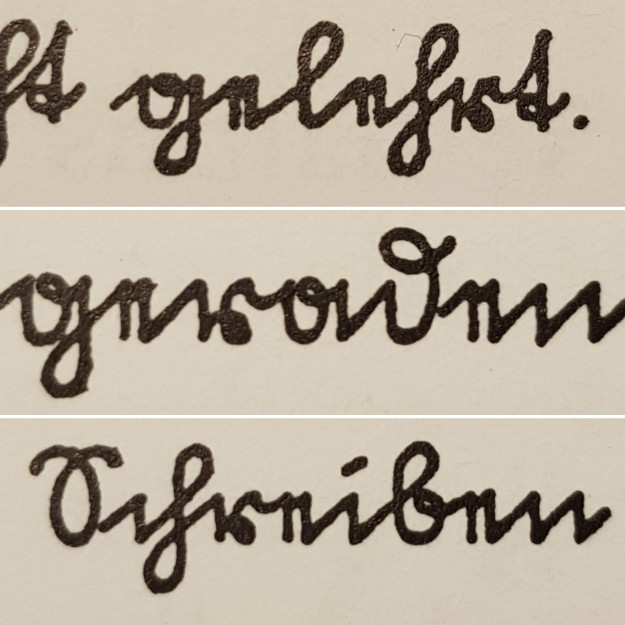 gelehrt.
geraden
Schreiben